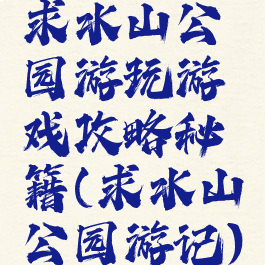 求水山公
园游玩游
戏攻略秘
籍(求水山
公园游记)